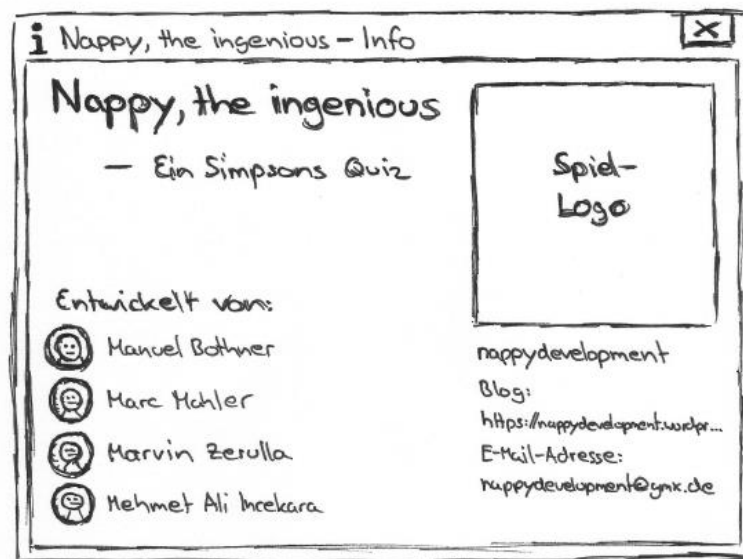 i Nappy, the ingenious – Info
X
Nappy, the ingenious
– Ein Simpsons Quiz
Spiel-
Logo
Entwickelt von:
Manuel Bothner
Marc Mahler
Marvin Zerulla
Mehmet Ali Incekara
nappydevelopment
Blog:
https://nappydevelopment.wordpr...
E-Mail-Adresse:
nappydevelopment@gmx.de